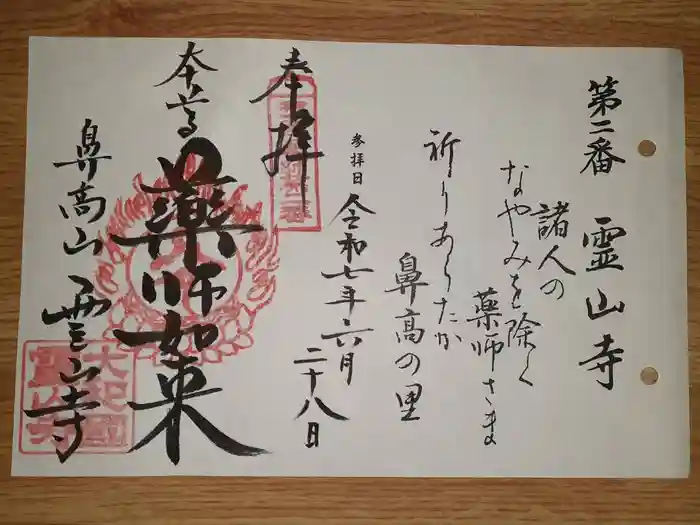 第二番 霊山寺
諸人の
なやみを除く
薬師さま
祈りあらたか
鼻高の里
参拝日 令和七年六月
二十八日
奉拝
本尊
薬師如来
鼻高山 霊山寺
大和國
霊山寺